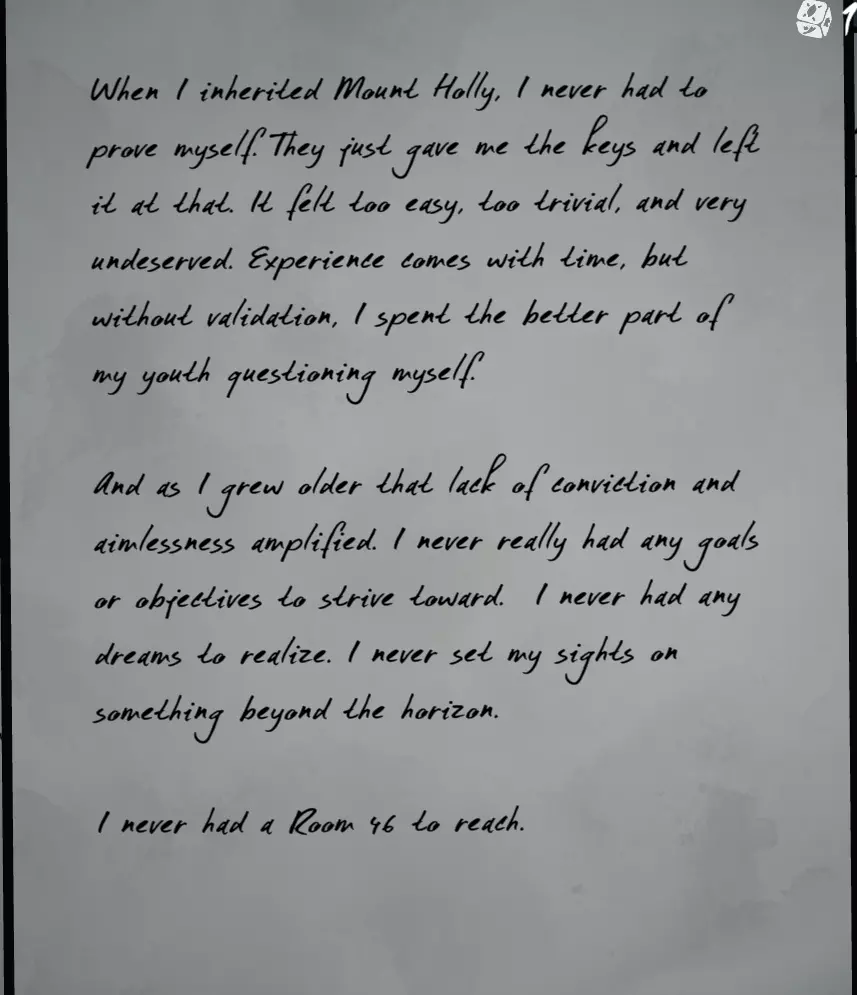 When I inherited Mount Holly, I never had to
prove myself. They just gave me the keys and left
it at that. It felt too easy, too trivial, and very
undeserved. Experience comes with time, but
without validation, I spent the better part of
my youth questioning myself.
And as I grew older that lack of conviction and
aimlessness amplified. I never really had any goals
or objectives to strive toward. I never had any
dreams to realize. I never set my sights on
something beyond the horizon.
I never had a Room 46 to reach.